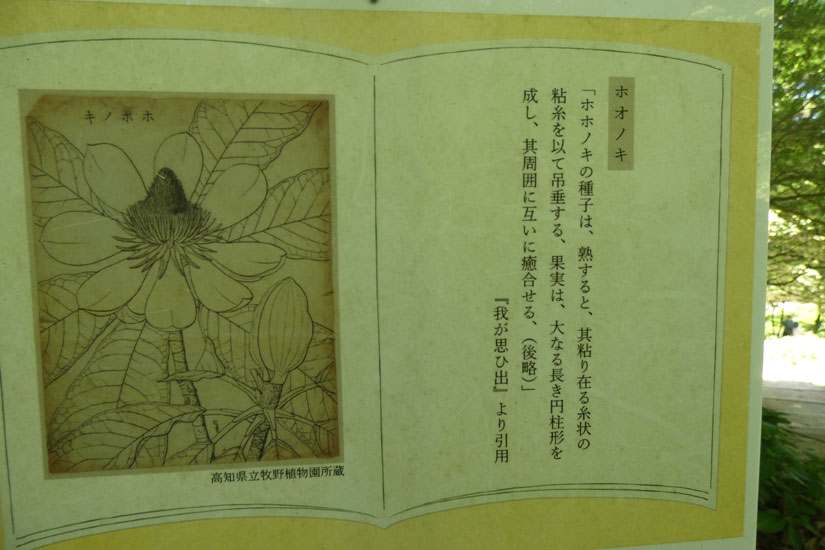 ホオノキ
「ホホノキの種子は、熟すると、其粘り在る糸状の
粘糸を以て吊垂する、果実は、大なる長き円柱形を
成し、其周囲に互いに癒合せる、（後略）」
『我が思ひ出』より引用
キノホホ
高知県立牧野植物園所蔵